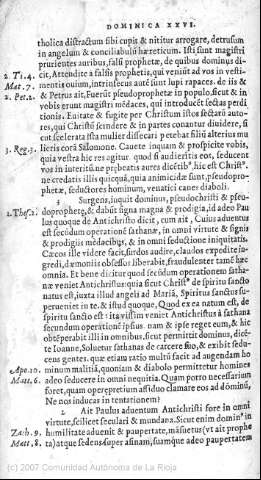 DOMINICA XXVI.
tholica distractum sibi cupit & nititur arrogare, detrusum
in angelum & conciliabulū hæreticum. Isti sunt magistri
prurientes auribus, falsi prophetæ, de quibus dominus di-
2. Ti. 4. cit, Attendite a falsis prophetis, qui veniūt ad vos in vesti-
Mat. 7. mentis ouium, intrinsecus autē sunt lupi rapaces. de iis &
2. Pet. 2. & Petrus ait, Fuerūt pseudoprophetæ in populo, sicut & in
vobis erunt magistri mēdaces, qui introducēt sectas perdi
tionis. Euitate & fugite per Christum istos sectarū auto-
res, qui Christū scindere & in partes conantur diuidere, si
cut scelerata ista mulier diffecari petebat filiū alterius mu
3. Reg. 3. lieris corā Salomone. Cauete inquam & prospicite vobis,
quia vestra hic res agitur. quod si audieritis eos, seducent
vos in interitū.
ne credatis illis quicquā, quia animicidæ sunt, pseudopro-
phetæ, seductores hominum, venatici canes diaboli.
Surgens, iuquit dominus, pseudochristi & pseu-
2. Thes. 2. doprophetę, & dabūt signa magna & prodigia, id adeo Pau
lus quoque de Antichristo dicit, cum ait, Cuius aduentus
est secūdum operationē sathanæ, in omni virtute & signis
& prodigiis mēdacibus, & in omni seductione iniquitatis.
Cæcos ille videre faciet, surdos audire, claudos expedite in-
gredi, dæmoniis obsessos liberabit, fraudulenter tamē hæc
omnia. Et bene dicitur quod secūdum operationem satha-
næ veniet Antichristus: quia sicut Christ⁹ de spiritu sancto
natus est, iuxta illud angeli ad Mariā, Spiritus sanctus su-
perueniet in te. & istud quoque, Quod ex ea natum est, de
spiritu sancto est: ita vti hic veniet Antichristus à sathana
secundum operationē ipsius. nam & ipse reget eum, & hic
obtēperabit illi in omnibus, sicut permittit dominus, dicē-
te Ioanne, Soluetur sathanas de carcere suo, & exibit sedu-
cens gentes. quæ etiam ratio multū facit ad augendam ho
Apo. 20. minum malitiā, quoniam & diabolo permittetur homines
Matt. 6. adeo seducere in omni nequitia. Quam porro necessarium
foret, quam operepretium assiduo clamare eos ad dōminū,
Ne nos inducas in tentationem?
Ait Paulus aduentum Antichristi fore in omni
virtute, scilicet seculari & mundana. Sicut enim domin⁹ in
Zach. 9. humilitate aduenit & paupertate, mansuetus (vt ait prophe
Matt. 8. ta) atque sedens super asinam, suamque adeo paupertatem
(c) 2007 Comunidad Autónoma de La Rioja